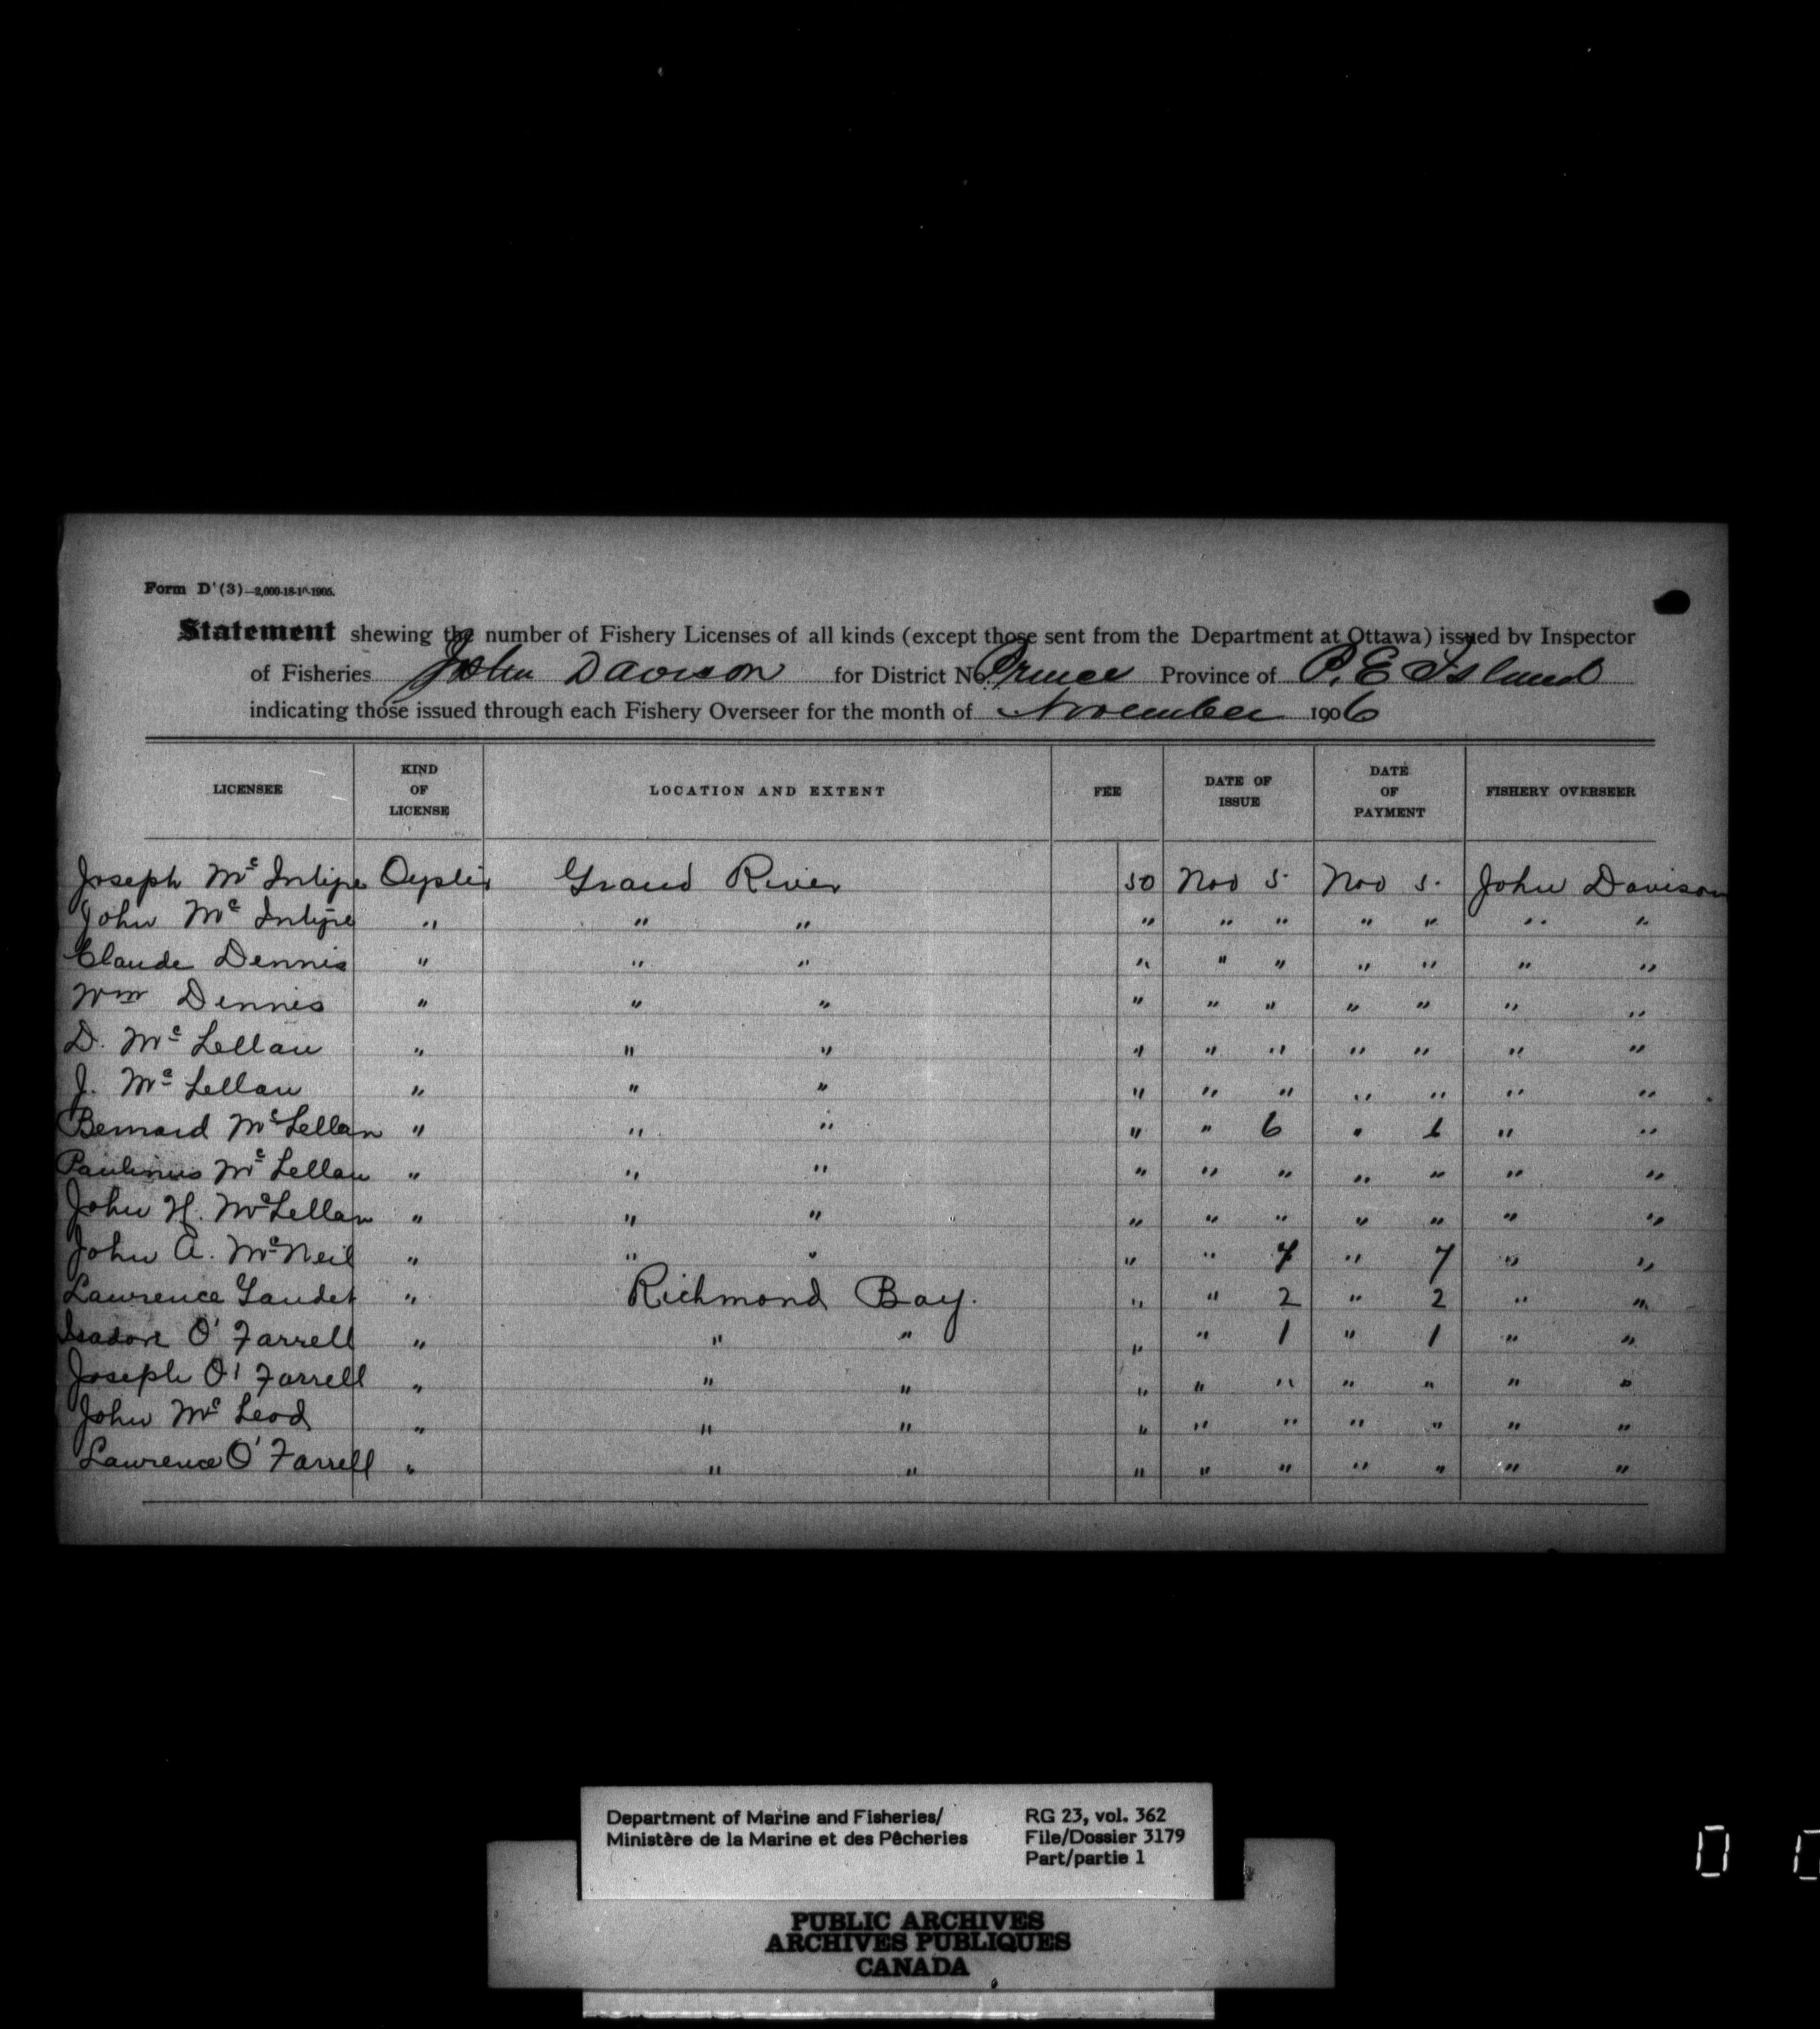 Form D' (3)—2,000-18-10-1905.
Statement shewing the number of Fishery Licenses of all kinds (except those sent from the Department at Ottawa) issued by Inspector
of Fisheries John Davison for District No. Prince Province of P. E Island
indicating those issued through each Fishery Overseer for the month of November 1906
LICENSEE KIND OF LICENSE LOCATION AND EXTENT FEE DATE OF ISSUE DATE OF PAYMENT FISHERY OVERSEER
Joseph Mc Intyre Oyster Grand River 50 Nov 5. Nov 5. John Davison
John Mc Intyre " " " " " " " " " "
Claude Dennis " " " " " " " " " "
Wm Dennis " " " " " " " " " "
D. Mc Lellan " " " " " " " " " "
J. Mc Lellan " " " " " " " " " "
Bernard McLellan " " " " " 6 " 6 " "
Paulinus Mc Lellan " " " " " " " " " "
John H. McLellan " " " " " " " " " "
John A. McNeil " " " " " 7 " 7 " "
Lawrence Gaudet " Richmond Bay. " " 2 " 2 " "
Isadore O'Farrell " " " " " 1 " 1 " "
Joseph O'Farrell " " " " " " " " " "
John Mc Leod " " " " " " " " " "
Lawrence O'Farrell " " " " " " " " " "
Department of Marine and Fisheries/ RG 23, vol. 362
Ministère de la Marine et des Pêcheries File/Dossier 3179
Part/partie 1
PUBLIC ARCHIVES
ARCHIVES PUBLIQUES
CANADA
0 0